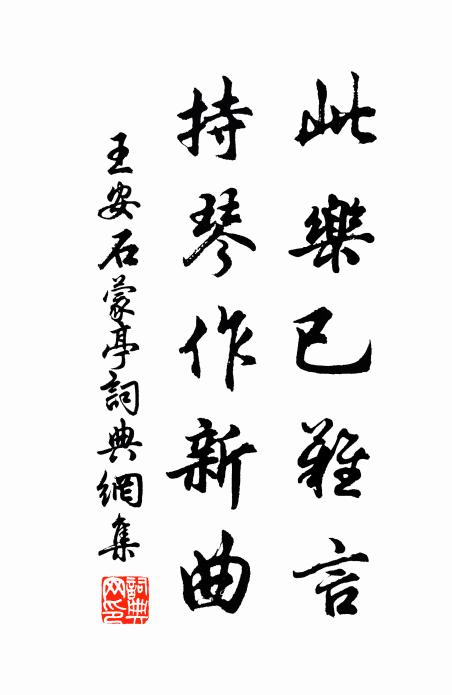 此樂已難言
持琴作新曲
王安石蒙亭詞典網集
詞典網印